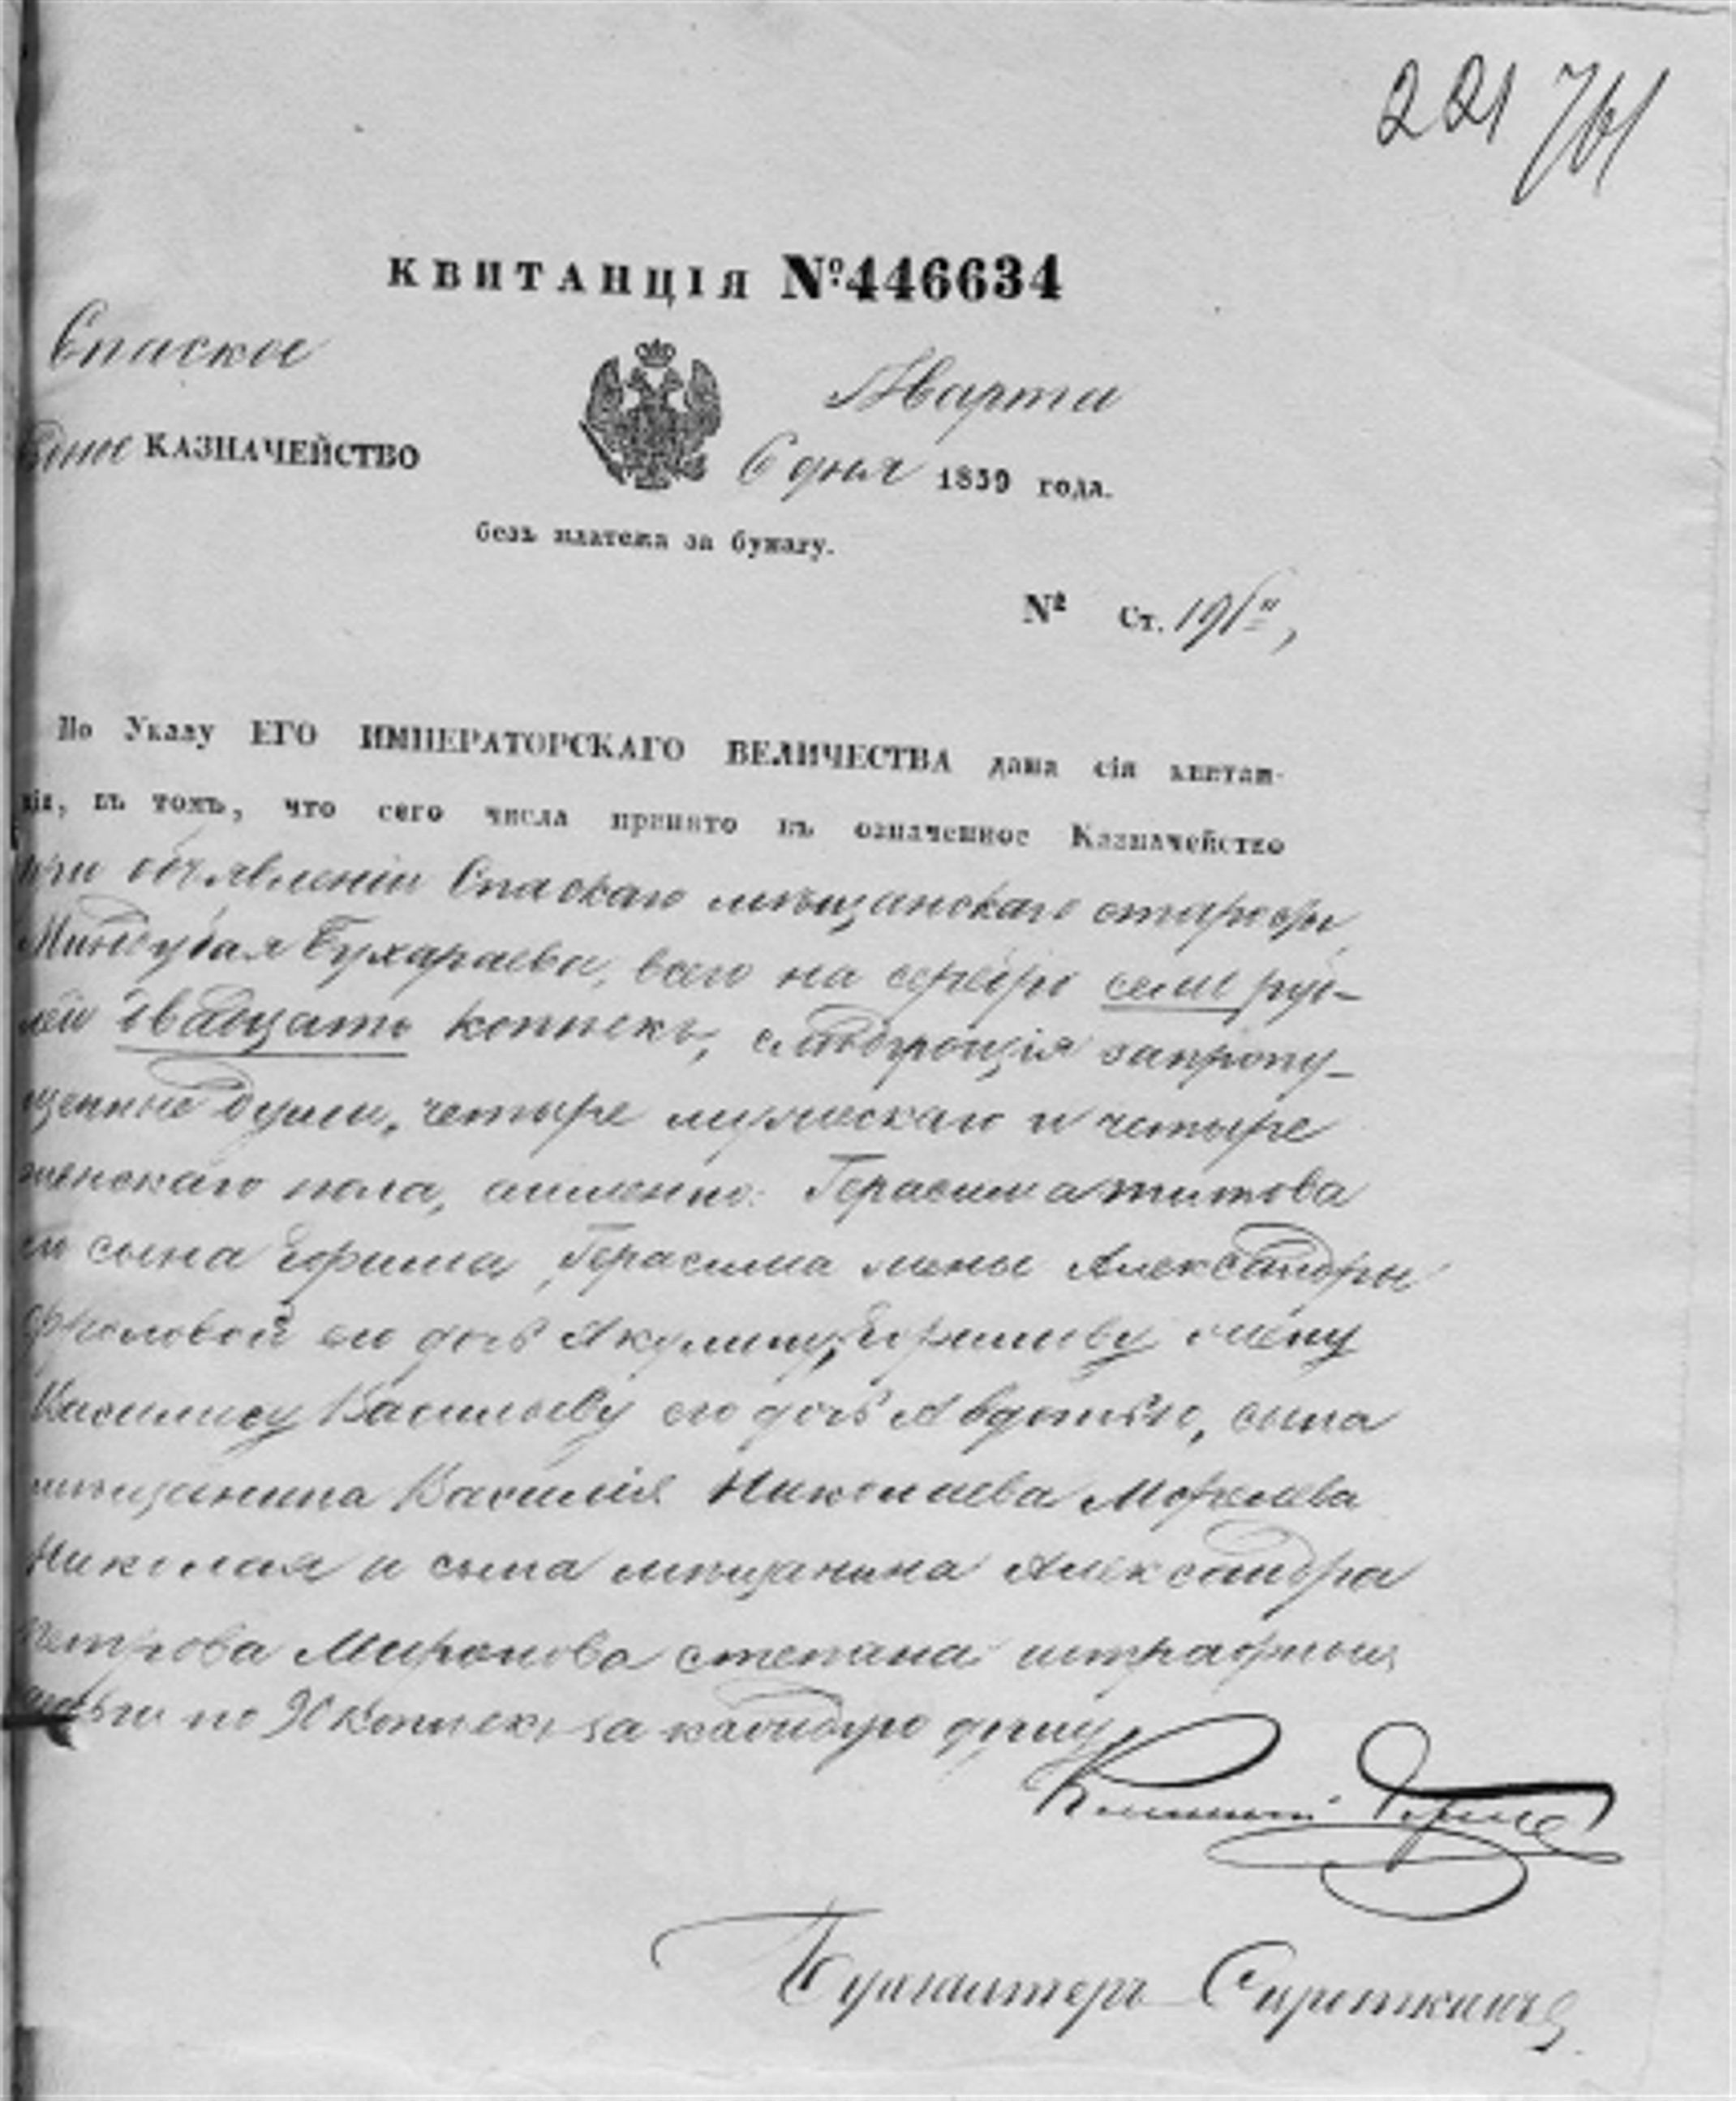 221 761
КВИТАНЦІЯ №446634
Спаское
Марта
КАЗНАЧЕЙСТВО
6 дня 1859 года.
безъ платежа за бумагу.
№ Ст.
По Указу ЕГО ИМПЕРАТОРСКАГО ВЕЛИЧЕСТВА дана сія квитан-
ція, въ томъ, что сего числа принято въ означенное Казначейство
при объявленіи Спаскаго мѣщанскаго старосты
Бухараева, всего на серебро семь руб-
лей двадцать копѣекъ, слѣдующія запропу-
щенные души, четыре мужескаго и четыре
женскаго пола, аименно: Герасима титова
его сына Ефима, Герасима жены Александры
его дочь Акулину, Ефимову жену
Василису Васильеву его дочь Авдотью, сына
мѣщанина Василія Николаева Морелева
Николая и сына мѣщанина Александра
петрова Миронова степана штрафных
по 90 копѣекъ за каждую душу
Бухгалтеръ Сироткинъ